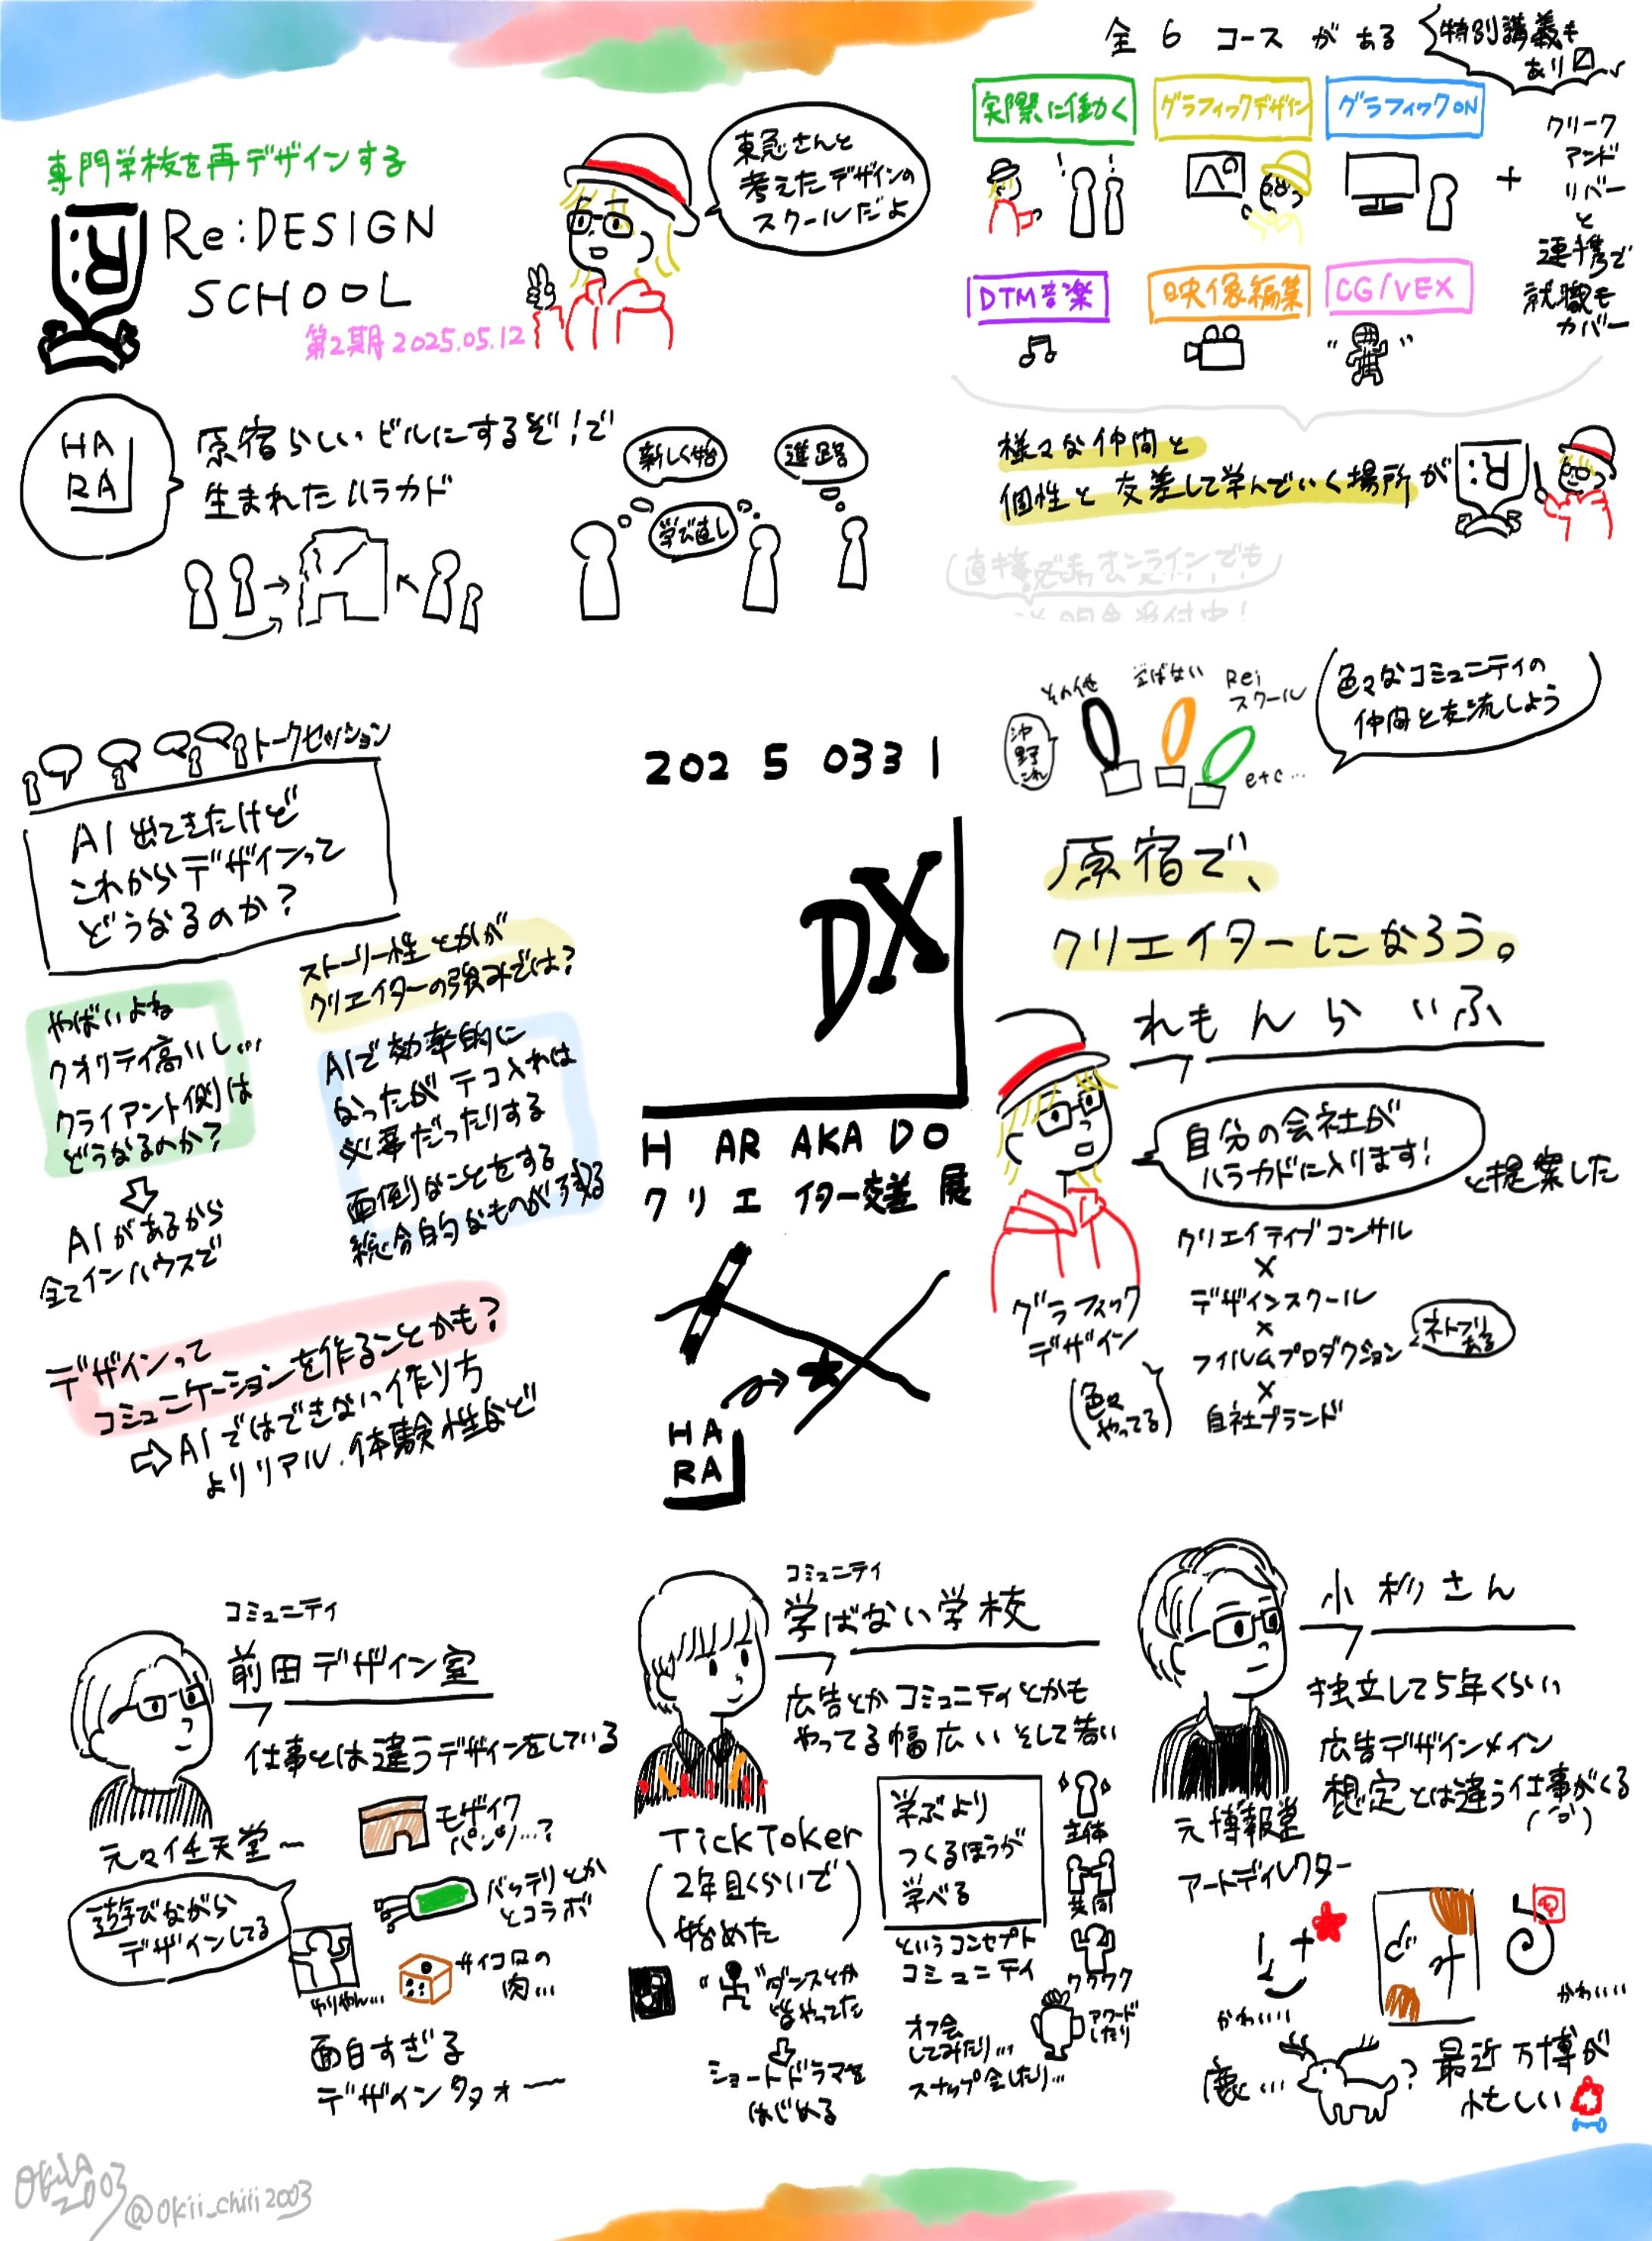 専門学校を再デザインする
Re:DESIGN
SCHOOL
第2期 2025.05.12
東急さんと
考えたデザインの
スクールだよ
全6コースがある
特別講義も
あり
実際に働く
グラフィックデザイン
グラフィックON
DTM音楽
映像編集
CG/VEX
+
クリーク
アンド
リバー
と
連携で
就職も
カバー
HA
RA
原宿らしいビルにするぞ!で
生まれたハラカド
新しく始
学び直し
進路
様々な仲間と
個性と交差して学んでいく場所が
R:
直接でもオンラインでも
トークセッション
AI出てきたけど
これからデザインって
どうなるのか?
やばいよね
クオリティ高いし...
クライアント側は
どうなるのか?
AIがあるから
全てインハウスで
ストーリー性とかが
クリエイターの強みでは?
AIで効率的に
なったがテコ入れは
必要だったりする
面倒なことをする
総合的なものが残る
デザインって
コミュニケーションを作ることかも?
⇨AIではできない作り方
よりリアル、体験性など
2025 0331
DX
HARAKADO
クリエイター交差展
HA
RA
その他
学ばない
Rei
スクール
沖野これ
etc...
色々なコミュニティの
仲間と交流しよう
原宿で、
クリエイターになろう。
れもんらいふ
自分の会社が
ハラカドに入ります!
と提案した
グラフィック
デザイン
(色々
やってる)
クリエイティブコンサル
×
デザインスクール
×
フィルムプロダクション
×
自社ブランド
ネトフリ
ある
コミュニティ
前田デザイン室
仕事とは違うデザインをしている
元々任天堂〜
遊びながら
デザインしてる
モザイク
パンツ...?
バッテリとか
とコラボ
サイコロの
肉...
面白すぎる
デザインタタォー
コミュニティ
学ばない学校
広告とかコミュニティとかも
やってる幅広いそして若い
TickToker
(2年目くらいで
始めた)
"ダンスとか
皆やってた
ショートドラマを
はじめる
学ぶより
つくるほうが
学べる
というコンセプト
コミュニティ
オフ会
してみたり...
スナップ会したり...
主体
共同
ワクワク
アワード
したり
小杉さん
独立して5年くらい
広告デザインメイン
想定とは違う仕事がくる
元博報堂
アートディレクター
かわいい
かわいい
鹿...
?
最近万博が
忙しい
Okii
2003
@okii_chiii2003